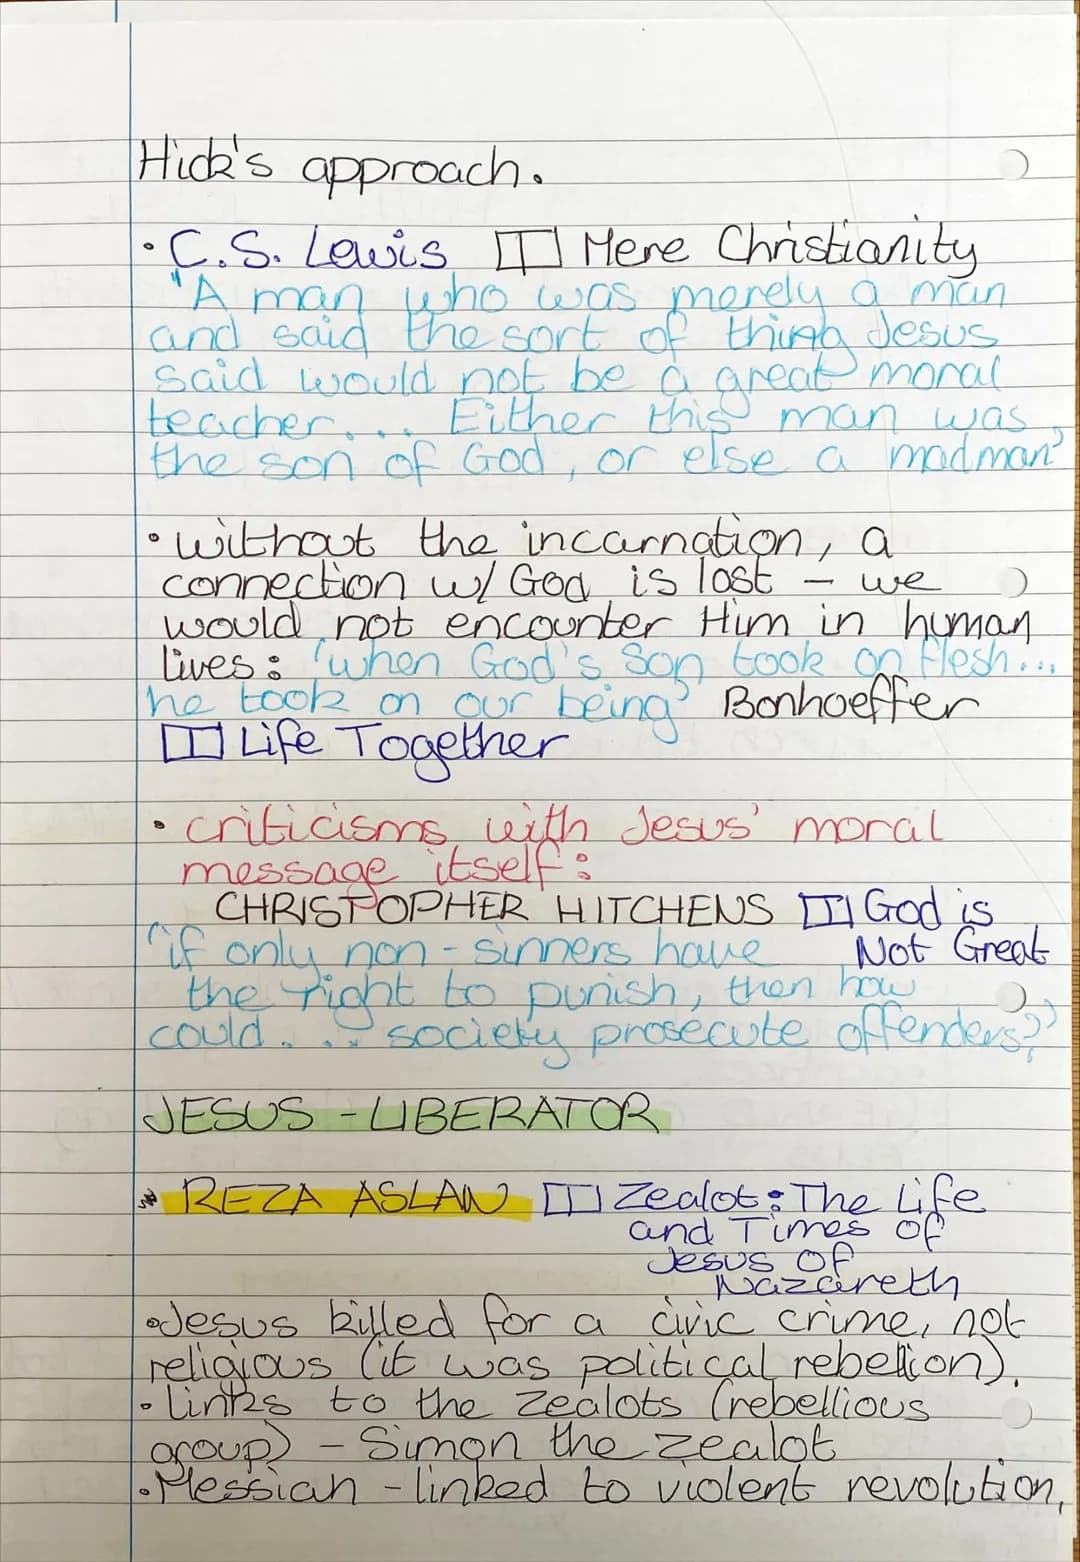 Hick's approach.
• C.S. Lewis Mere Christianity
"A man who was merely a man
and said the sort of thing Jesus
said would not be a great moral
teacher.... Either this man was
the son of God, or else a madman"
• without the incarnation, a
connection w/ God is lost – we
would not encounter Him in human
lives: 'when God's Son took on flesh...
he took on our being' Bonhoeffer
Life Together
• criticisms with Jesus' moral
message itself:
CHRISTOPHER HITCHENS God is
Not Great
'if only non-sinners have
the right to punish, then how
could.... society prosecute offenders?'
JESUS - LIBERATOR
REZA ASLAN Zealot: The Life
and Times of
Jesus of
Nazareth
• Jesus killed for a civic crime, not
religious (it was political rebellion).
• links to the Zealots (rebellious
group) – Simon the zealot
• Messiah – linked to violent revolution,